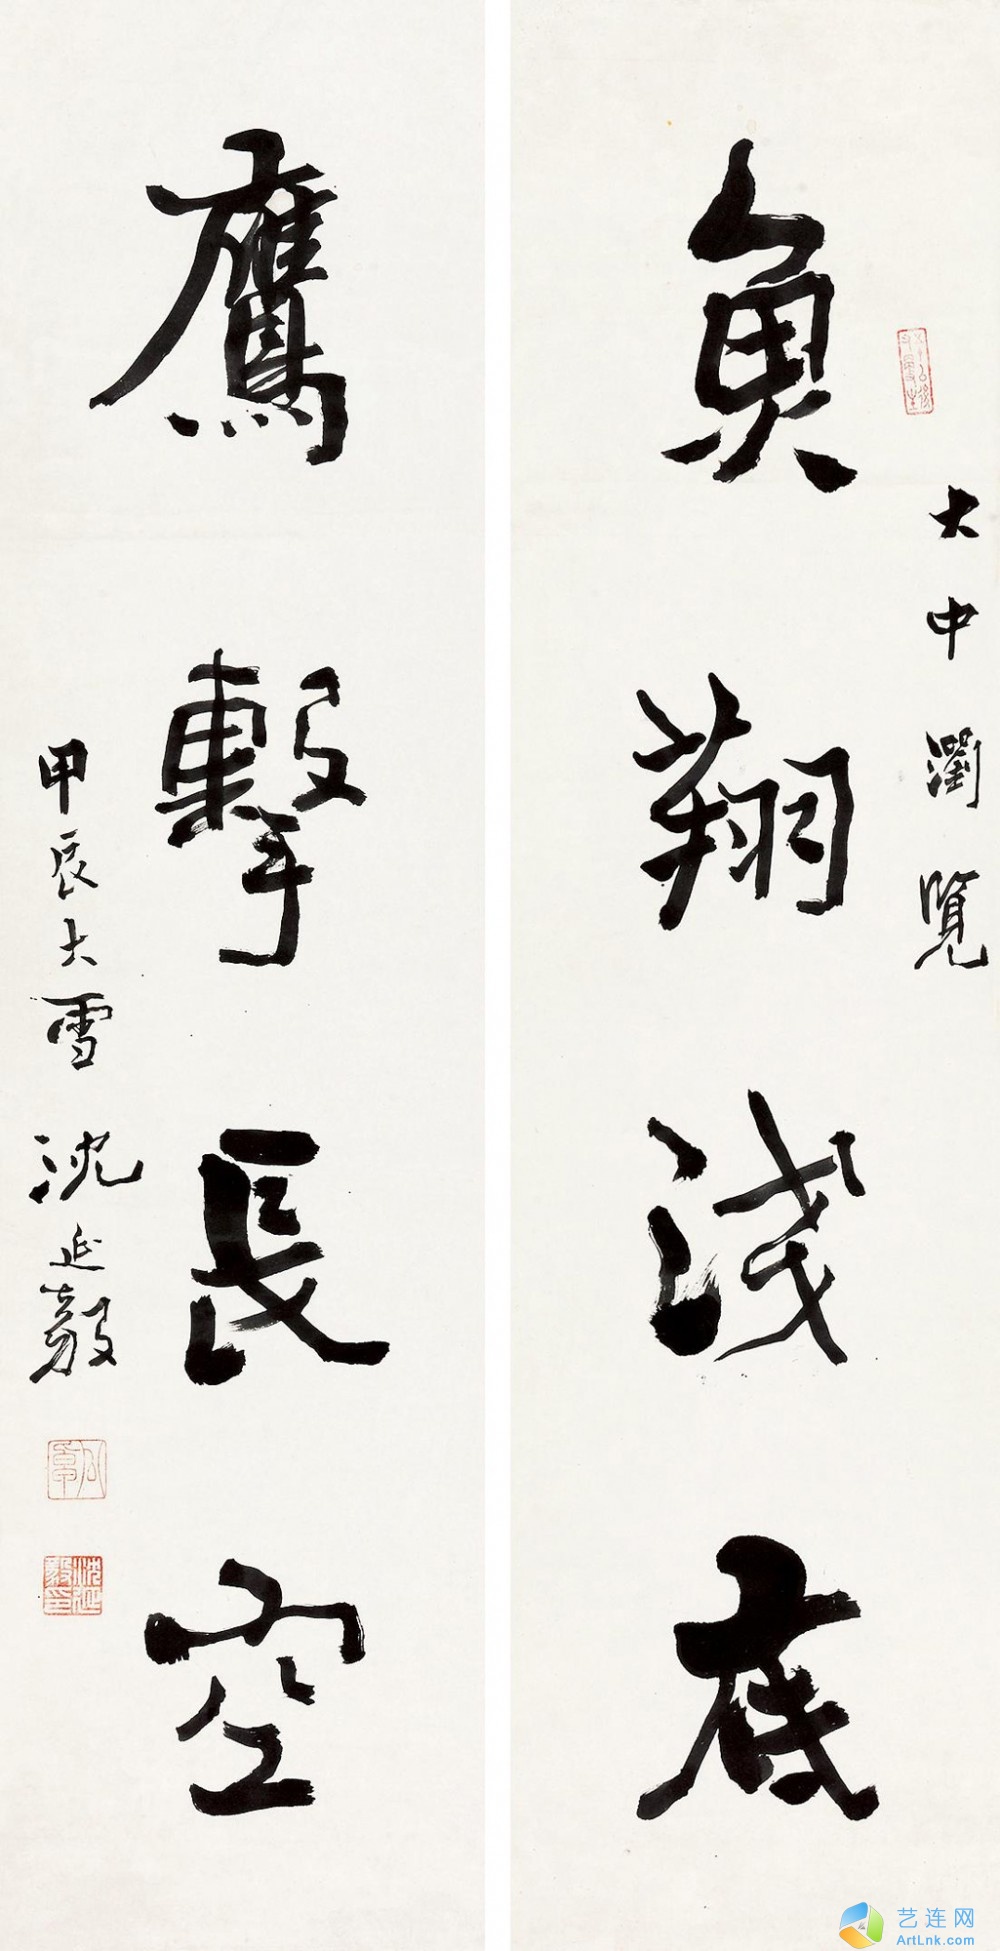 大中瀏覽
魚翔淺底
鷹擊長空
甲辰大雪沈延毅
沈延毅印
艺连网
ArtLnk.com